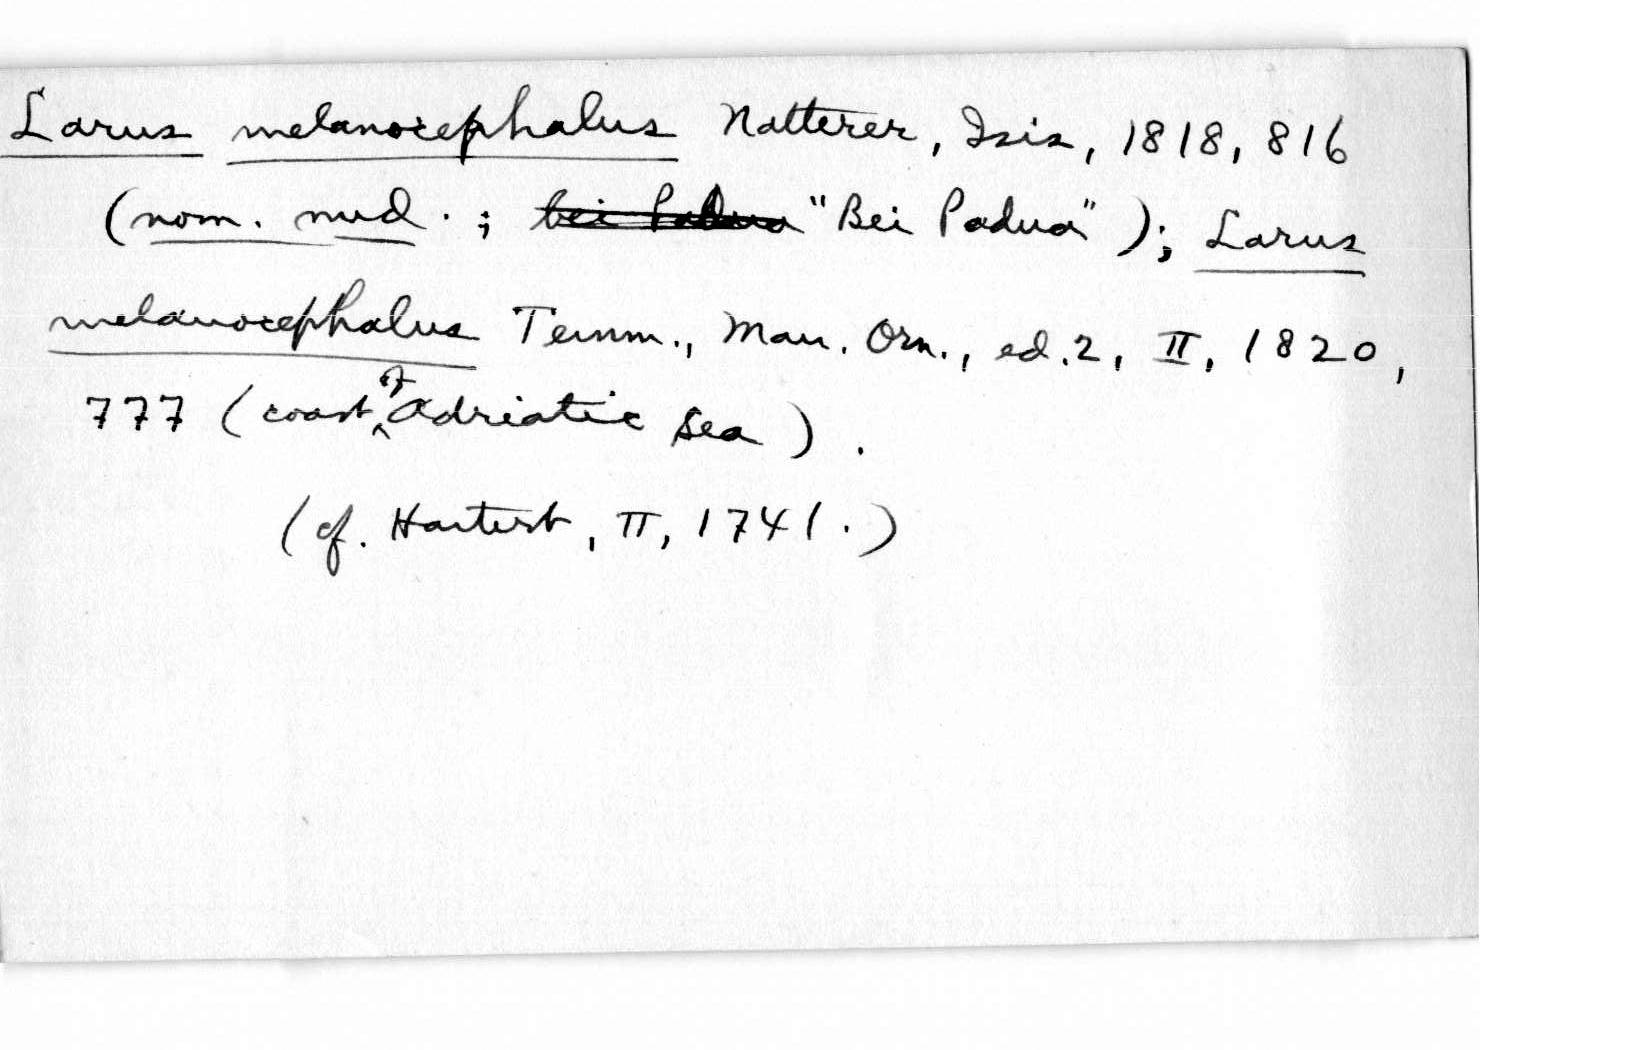 Larus melanocephalus Natterer, Isis, 1818, 816
(nom. nud.; bei Padua "Bei Padua"); Larus
melanocephalus Temm., Man. Orn., ed. 2, II, 1820,
777 (coast of Adriatic Sea).
(cf. Hartert, II, 1741.)